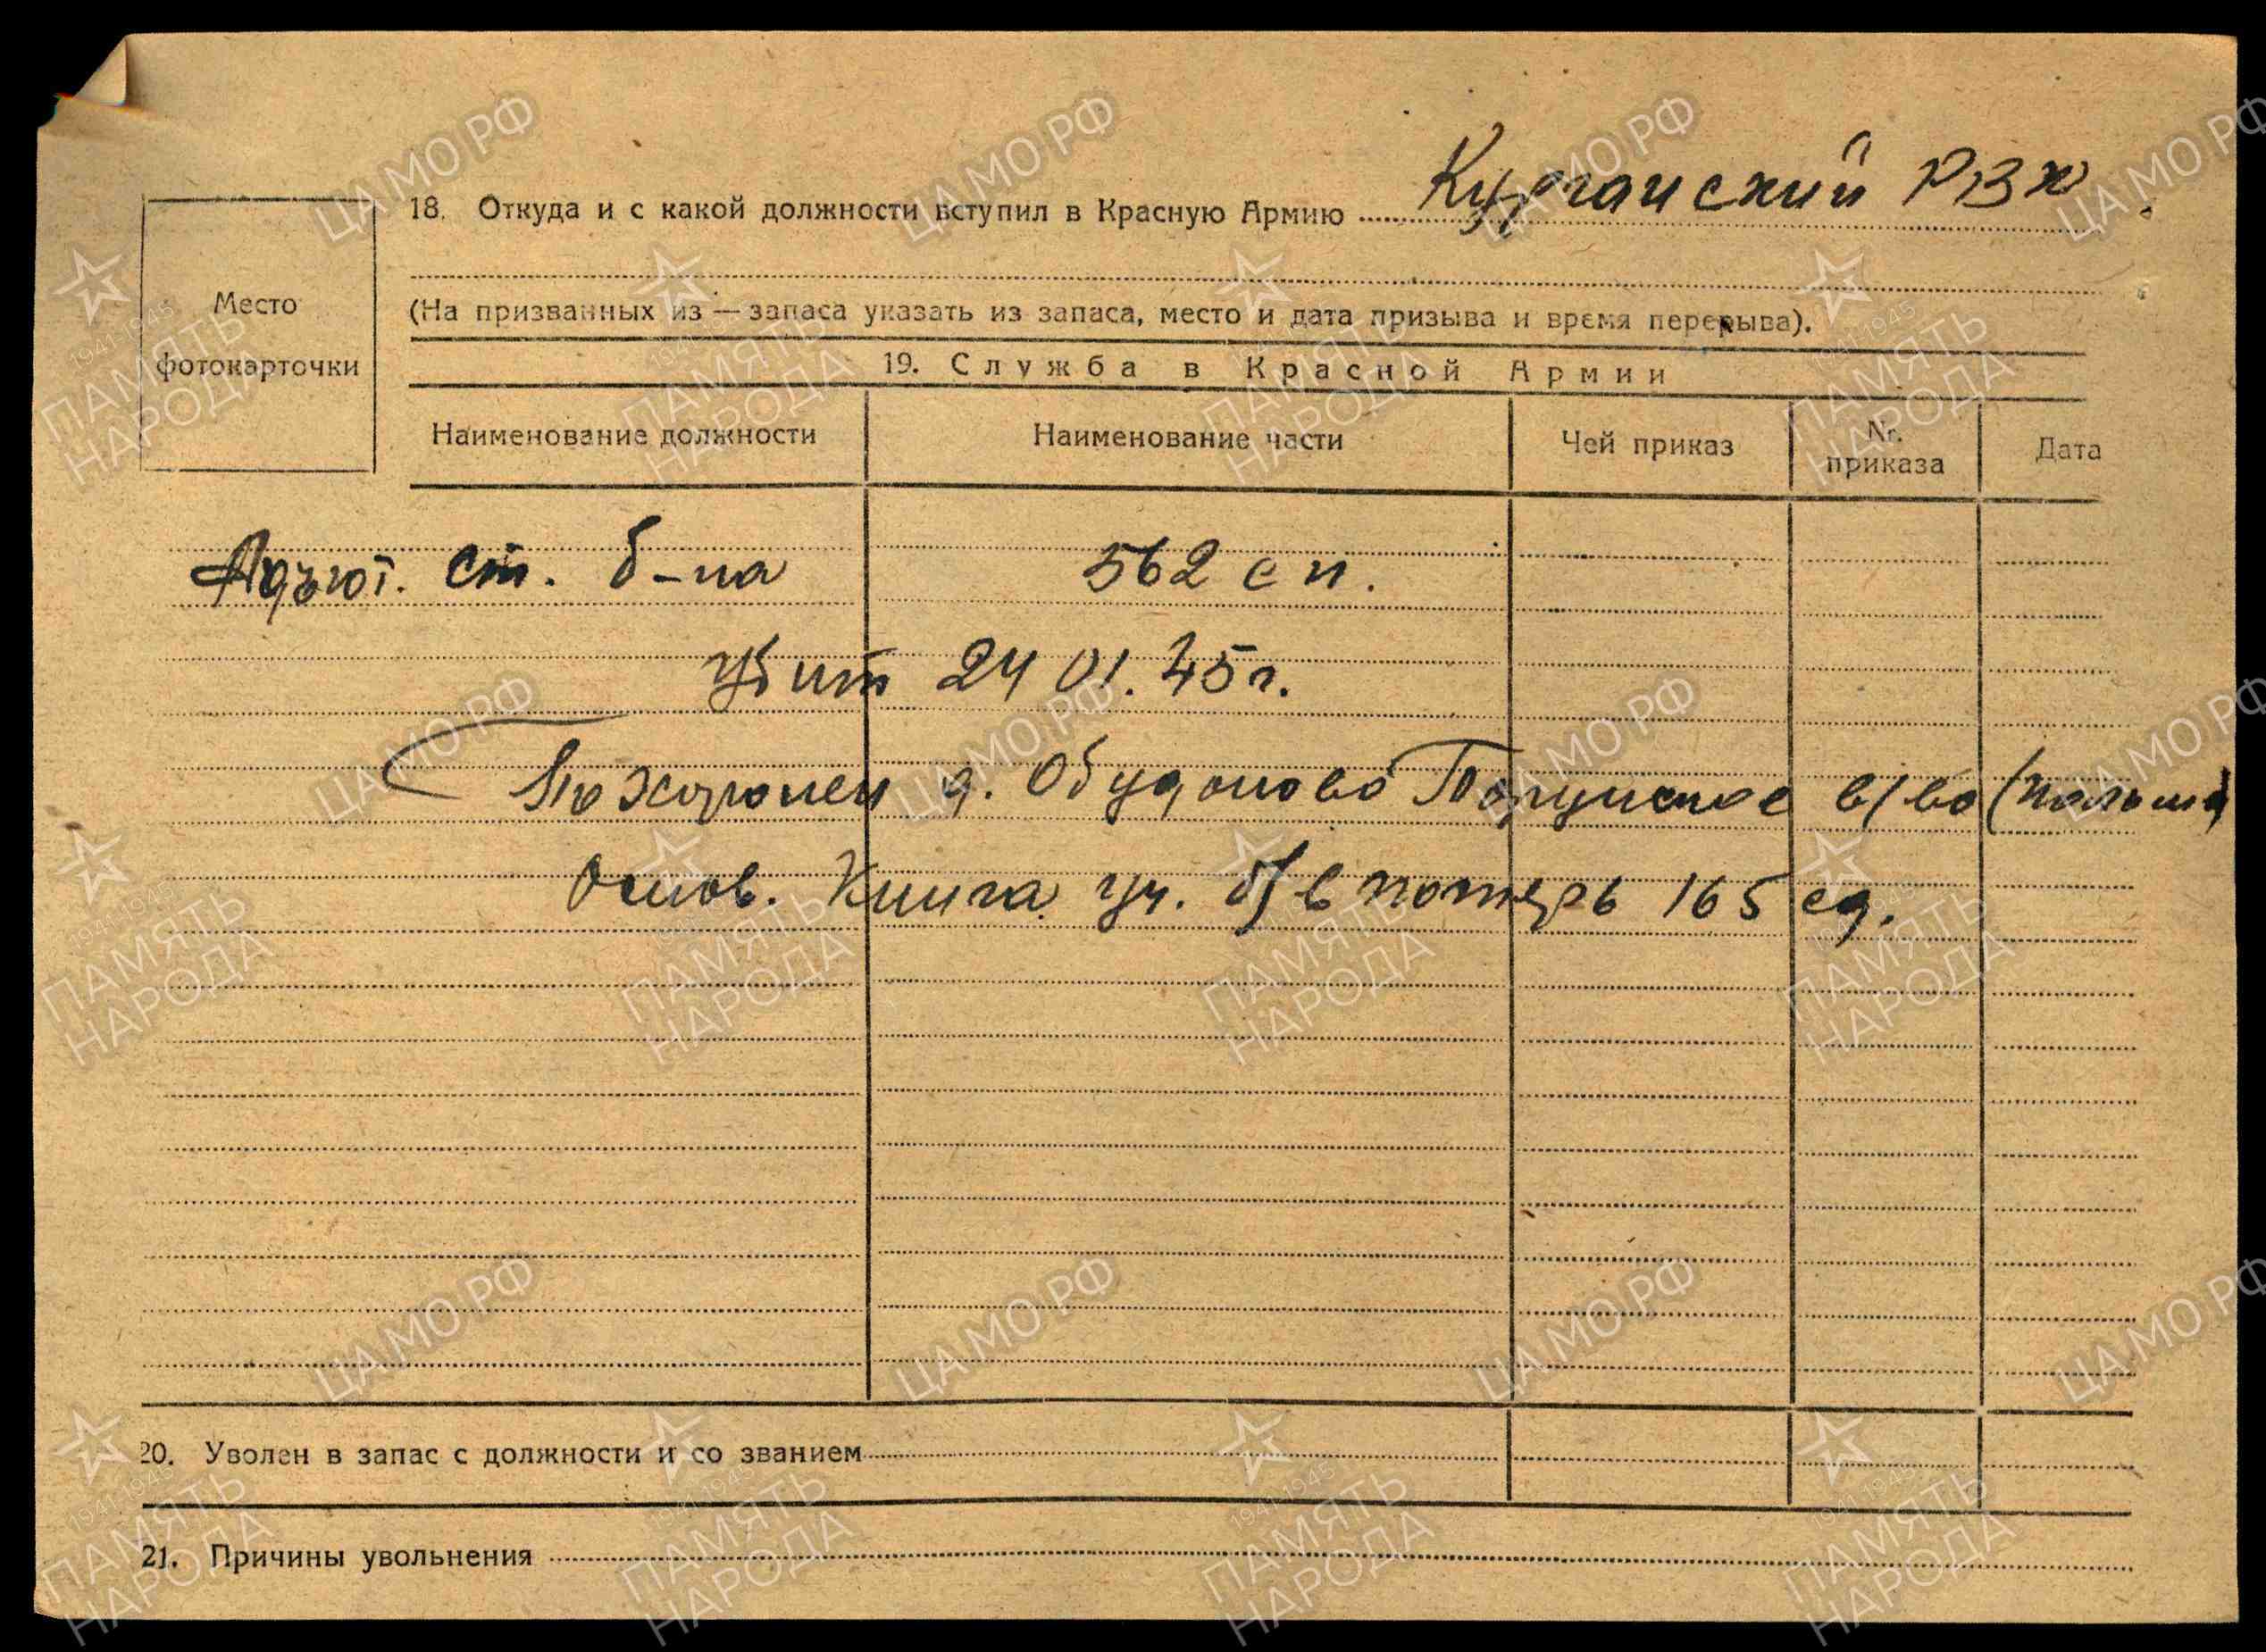 18. Откуда и с какой должности вступил в Красную Армию Курганский РВК
(На призванных из — запаса указать из запаса, место и дата призыва и время перерыва).
Место
фотокарточки
19. Служба в Красной Армии
Наименование должности Наименование части Чей приказ Nr. приказа Дата
Адъют. ст. б-на 562 сп.
Убит 24 01.45г.
Похоронен д. Обудоново Торунское в/во (Польша)
Основ. Книга уч. б/в потерь 165 сд.
20. Уволен в запас с должности и со званием
21. Причины увольнения
ЦАМО.РФ
1941-1945
ПАМЯТЬ
НАРОДА